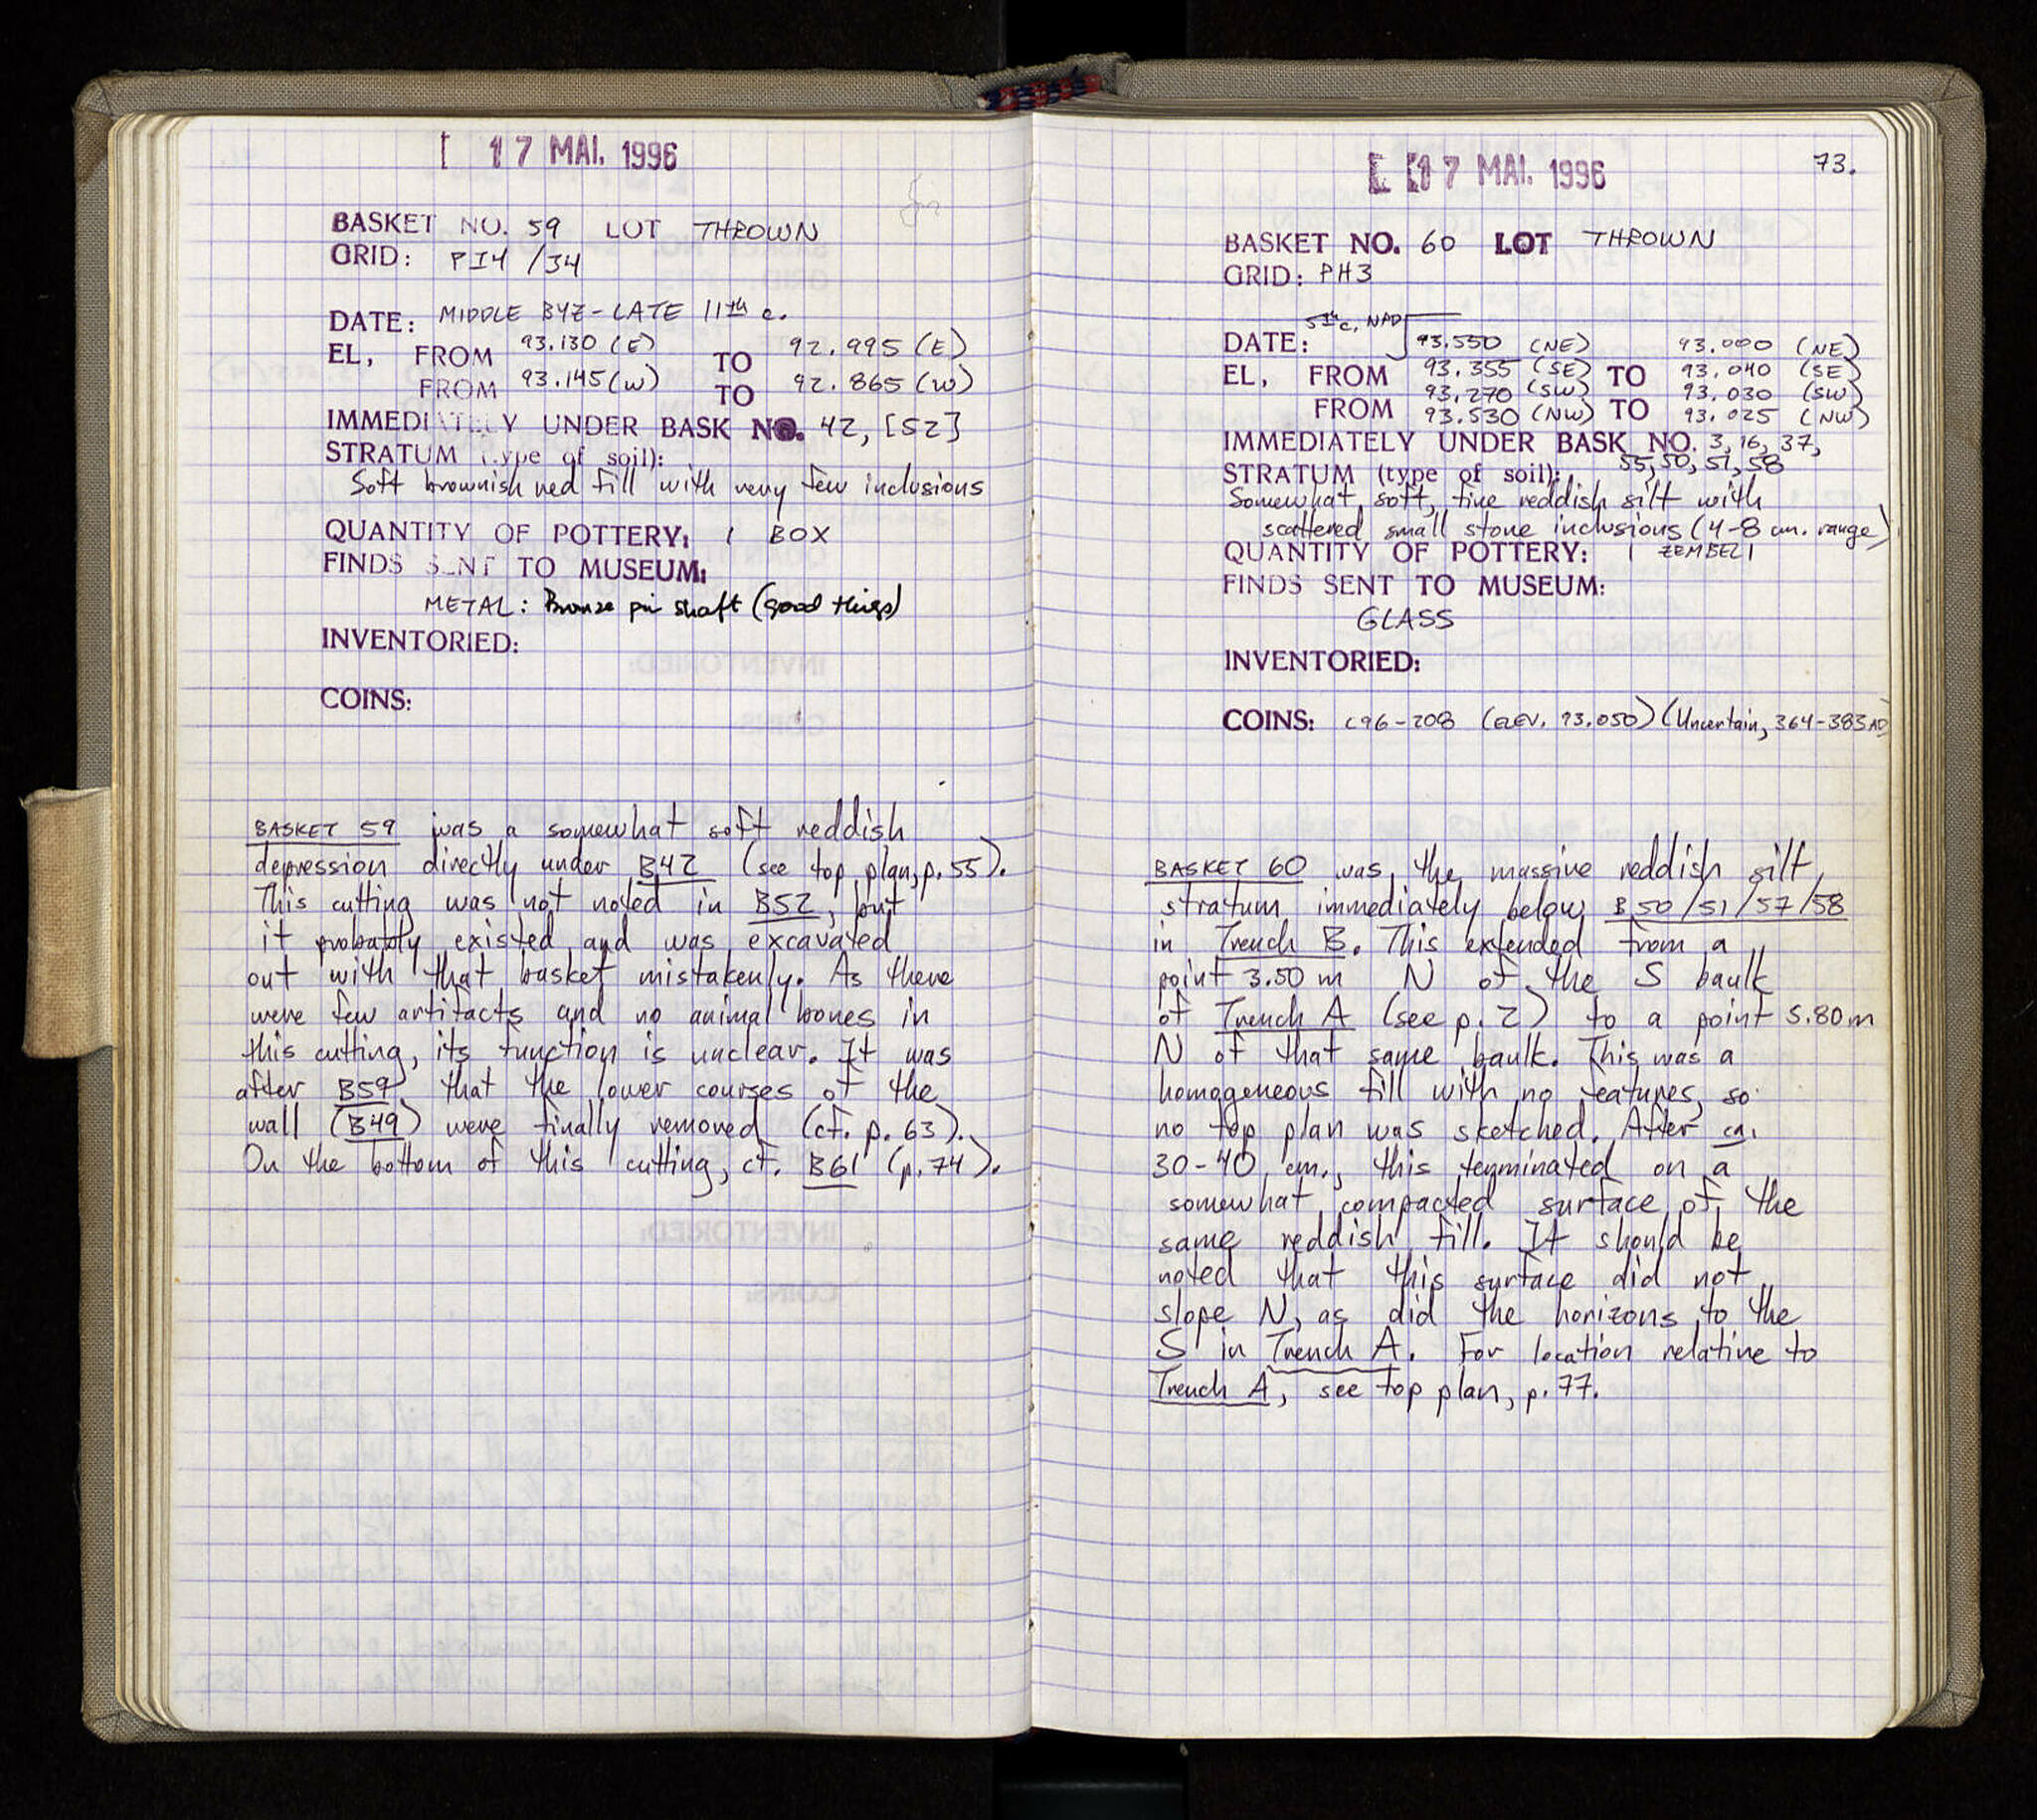 17 MAI. 1996
BASKET NO. 59 LOT THROWN
GRID: PI4 / J4
DATE: MIDDLE BYZ - LATE 11th c.
EL, FROM 93.130 (E) TO 92.995 (E)
FROM 93.145 (W) TO 92.865 (W)
IMMEDIATELY UNDER BASK NO. 42, [52]
STRATUM (type of soil):
Soft brownish red fill with very few inclusions
QUANTITY OF POTTERY: 1 BOX
FINDS SENT TO MUSEUM:
METAL: Bronze pin shaft (good things)
INVENTORIED:
COINS:
BASKET 59 was a somewhat soft reddish
depression directly under B42 (see top plan, p. 55).
This cutting was not noted in B52, but
it probably existed and was excavated
out with that basket mistakenly. As there
were few artifacts and no animal bones in
this cutting, its function is unclear. It was
after B59 that the lower courses of the
wall (B49) were finally removed (cf. p. 63).
On the bottom of this cutting, cf. B61 (p. 74).
17 MAI. 1996
73.
BASKET NO. 60 LOT THROWN
GRID: PH3
DATE: 5th c,
93.550 (NE) 93.000 (NE)
EL, FROM 93.355 (SE) TO 93.040 (SE)
93.270 (SW) 93.030 (SW)
FROM 93.530 (NW) TO 93.025 (NW)
IMMEDIATELY UNDER BASK NO. 3, 16, 37,
55, 50, 51, 58
STRATUM (type of soil):
Somewhat soft, fine reddish silt with
scattered small stone inclusions (4-8 cm. range)
QUANTITY OF POTTERY: 1 ZEMBELI
FINDS SENT TO MUSEUM:
GLASS
INVENTORIED:
COINS: C96-208 (ELEV. 93.050) (Uncertain, 364-383 AD)
BASKET 60 was the massive reddish silt
stratum immediately below B50/51/57/58
in Trench B. This extended from a
point 3.50 m N of the S baulk
of Trench A (see p. 2) to a point 5.80 m
N of that same baulk. This was a
homogeneous fill with no features, so
no top plan was sketched. After ca.
30-40 cm., this terminated on a
somewhat compacted surface of the
same reddish fill. It should be
noted that this surface did not
slope N, as did the horizons to the
S in Trench A. For location relative to
Trench A, see top plan, p. 77.